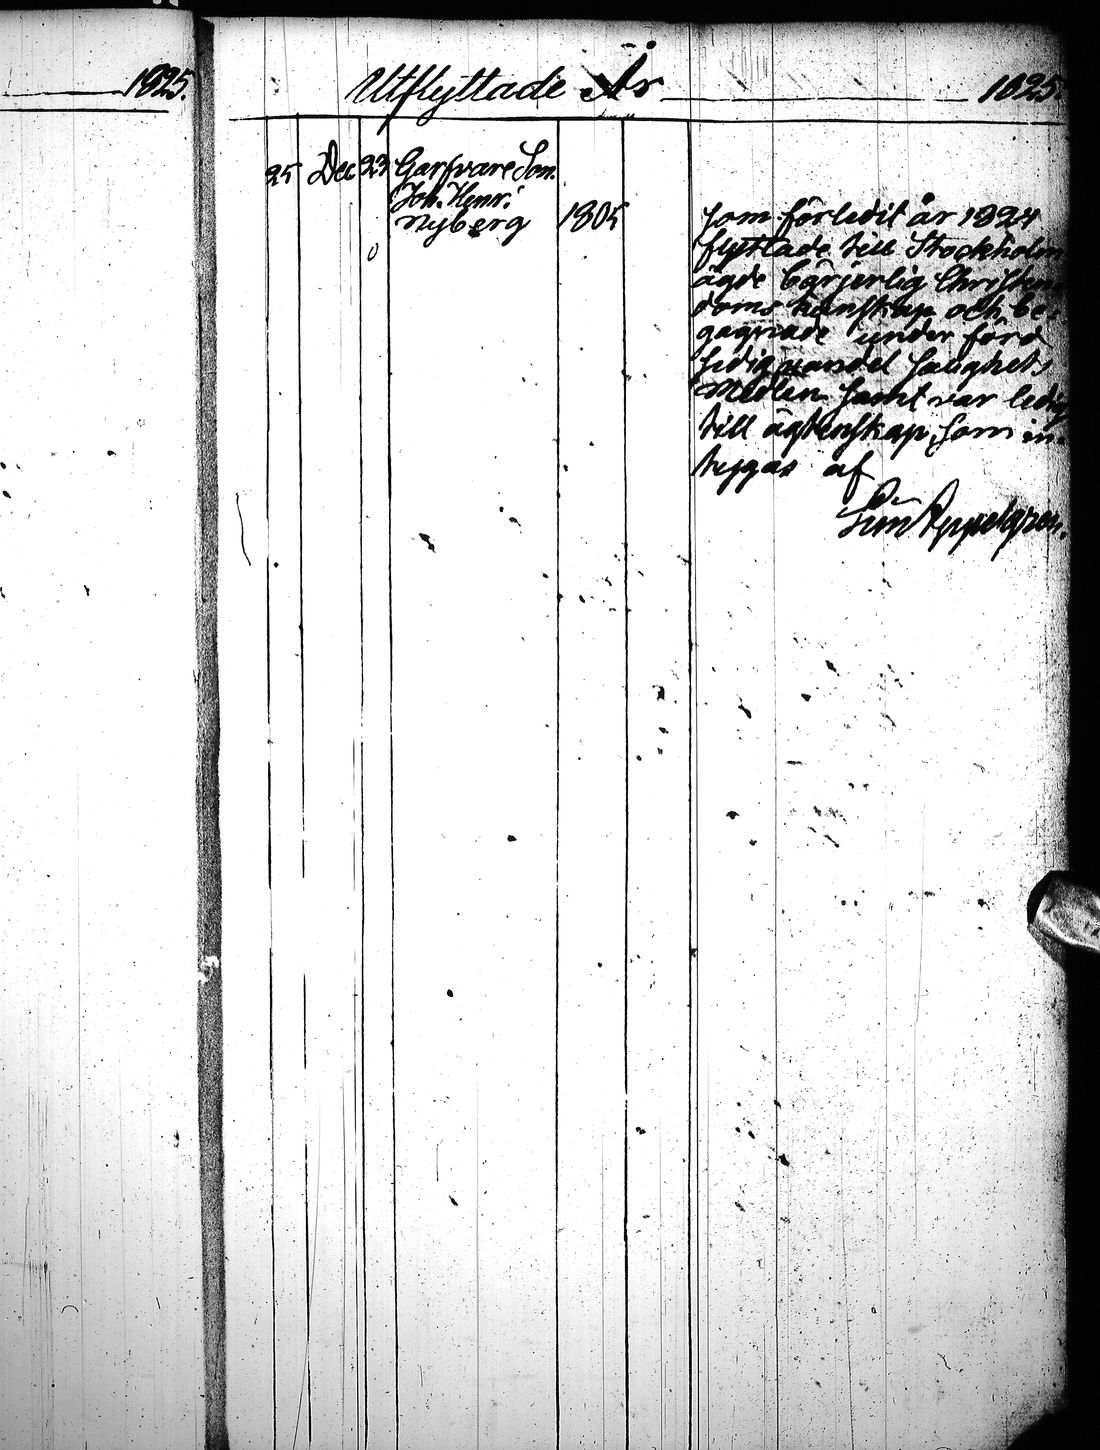 1825.
Utflyttade År 1825.
25 Dec 23 Garfvare Son.
Joh. Henr:
Nyberg 1805
som förledit år 1824
flyttade till Stockholm
ägde börjerlig Christen-
doms kunskap och be-
gagnade under förd
sedig vandel salighets
Medlen samt var ledig
till ägtenskap, som in-
tygas af
Appelgren.